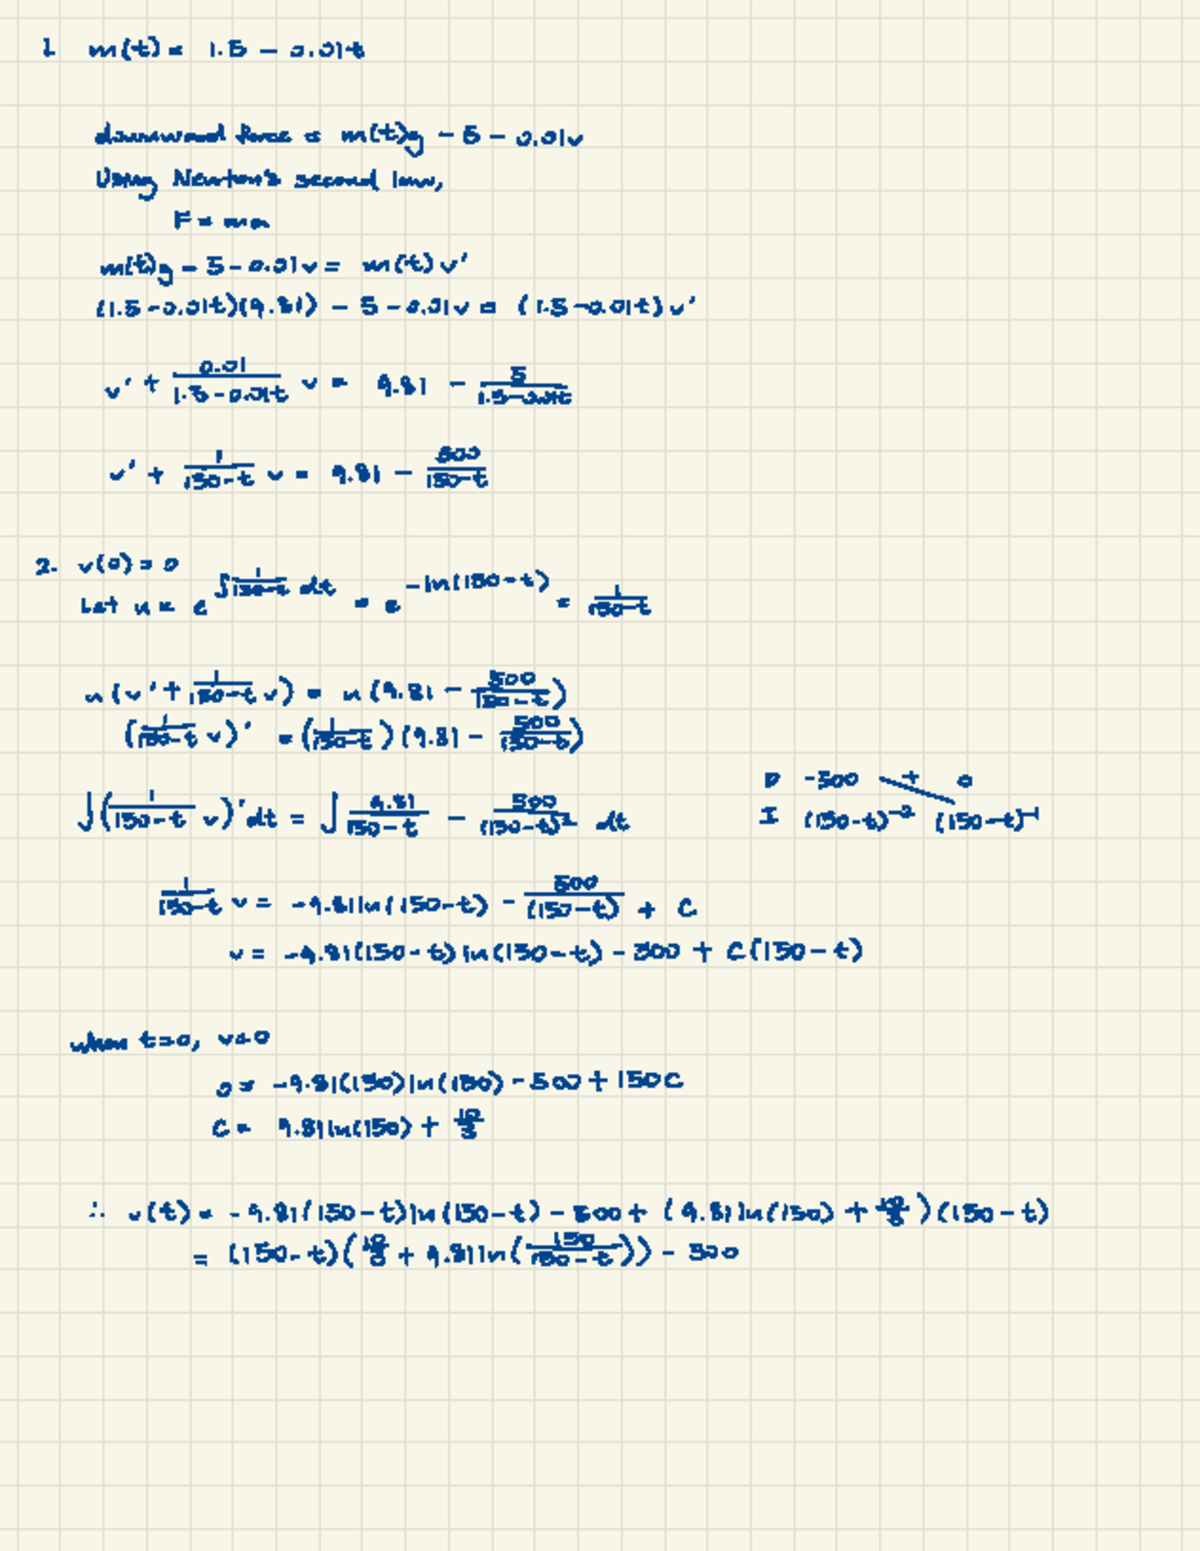 1. m(t) = 1.5 - 0.01t
downward force = m(t)g - 5 - 0.01v
Using Newton's second law,
F = ma
m(t)g - 5 - 0.01v = m(t)v'
(1.5-0.01t)(9.81) - 5 - 0.01v = (1.5-0.01t)v'
v' + 0.01/(1.5-0.01t) v = 9.81 - 5/(1.5-0.01t)
v' + 1/(150-t) v = 9.81 - 500/(150-t)
2. v(0) = 0
Let u = e^(∫ 1/(150-t) dt) = e^(-ln(150-t)) = 1/(150-t)
u(v' + 1/(150-t) v) = u(9.81 - 500/(150-t))
(1/(150-t) v)' = (1/(150-t))(9.81 - 500/(150-t))
∫(1/(150-t) v)' dt = ∫ 9.81/(150-t) - 500/(150-t)² dt
D -500 + 0
I (150-t)⁻² (150-t)⁻¹
1/(150-t) v = -9.81ln(150-t) - 500/(150-t) + C
v = -9.81(150-t)ln(150-t) - 500 + C(150-t)
when t=0, v=0
0 = -9.81(150)ln(150) - 500 + 150C
C = 9.81ln(150) + 10/3
∴ v(t) = -9.81(150-t)ln(150-t) - 500 + (9.81ln(150) + 10/3)(150-t)
= (150-t)(10/3 + 9.81ln(150/(150-t))) - 500